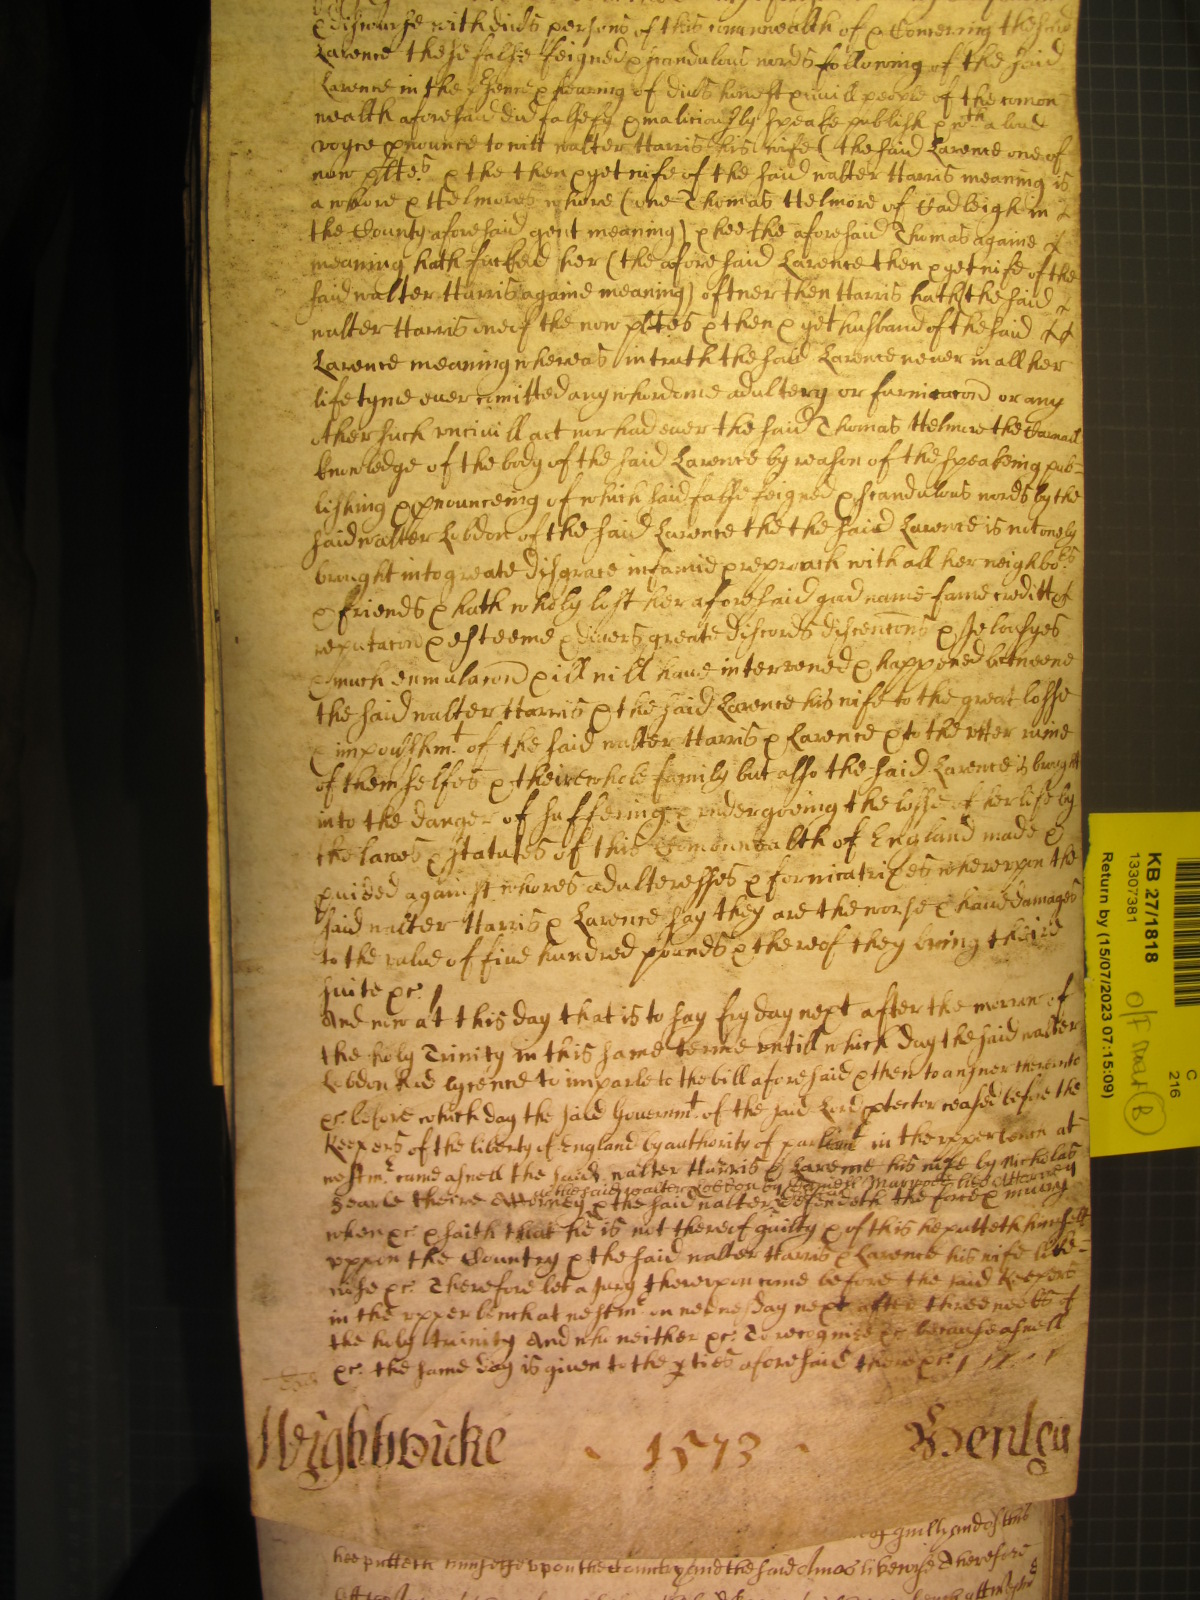 & discourse with divs persons of this comonwealth of & Concerning the said
Larence these false feigned & scandulous words following of the said
Larence in the psence & hearing of divs honest & civill people of the comon
wealth aforesaid did falsely & maliciously speake publish & wth a loud
voyce pnounce to witt walter Harris his wife (the said Larence one of
now pltes. & the then & yet wife of the said walter Harris meaning is
a whore & Helmores whore (one Thomas Helmore of Hadleigh in
the County aforesaid gent meaning) & hee the aforesaid Thomas againe
meaning hath fucked her (the aforesaid Larence then & yet wife of the
said walter Harris againe meaning) oftner then Harris hath (the said
walter Harris one of the now pltes & then & yet husband of the said
Larence meaning whereas in truth the said Larence never in all her
life tyme ever comitted any whordome adultery or furnicacon or any
other such uncivill act nor had ever the said Thomas Helmore the Carnall
knowledge of the body of the said Larence by reason of the speakeing pub=
lishing & pnounceing of which said false feigned & scandulous words by the
said walter Lobdon of the said Larence the the said Larence is not onely
brought into greate disgrace infamie & reproach with all her neighbors
& friends & hath wholy lost her aforesaid good name fame creditt
reputacon & esteeme & divers greate discords discencons & Jelousyes
& much enmulacon & ill will have intervened & happened betweene
the said walter Harris & the said Larence his wife to the great losse
& impovishmt. of the said walter Harris & Larence & to the utter ruine
of themselfes & theire whole family but also the said Larence is brought
into the danger of suffering & undergoeing the losse of her life by
the lawes & statutes of this Comonwealth of England made &
pvided against whores adulteresses & fornicatrixes whereupon the
said walter Harris & Larence say they are the worse & have damages
to the value of five hundred pounds & thereof they bring their
suite &c.
And now at this day that is to say fryday next after the morrow of
the holy Trinity in this same terme untill which day the said walter
Lobdon had lycence to imparle to the bill aforesaid & then to answer thereunto
&c. before which day the said Governmt. of the said Lord ptector ceased before the
Keepers of the liberty of England by authority of parliamt in the upper bench at
westmr. came aswell the said walter Harris & Larence his wife by Nicholas
Searle theire Attorney & the said walter Lobdon by his Attorney
& the said walter defendeth the force & iniury
when &c & saith that he is not thereof guilty & of this he putteth himself
uppon the Country & the said walter Harris & Larence his wife like=
wise &c. Therefore let a Jury thereupon come before the said Keepers
in the upper bench at westmr. on wednesday next after three weeks of
the holy trinity And who neither &c. To recognise &c. because aswell
&c. the same day is given to the pties aforesaid there &c.
Weightwicke - 1573 - Henley
guilty and of this
hee putteth himselfe upon the Countrey and the said likewise Therefore
C
216
KB 27/1818
13307381
Return by (15/07/2023 07:15:09)